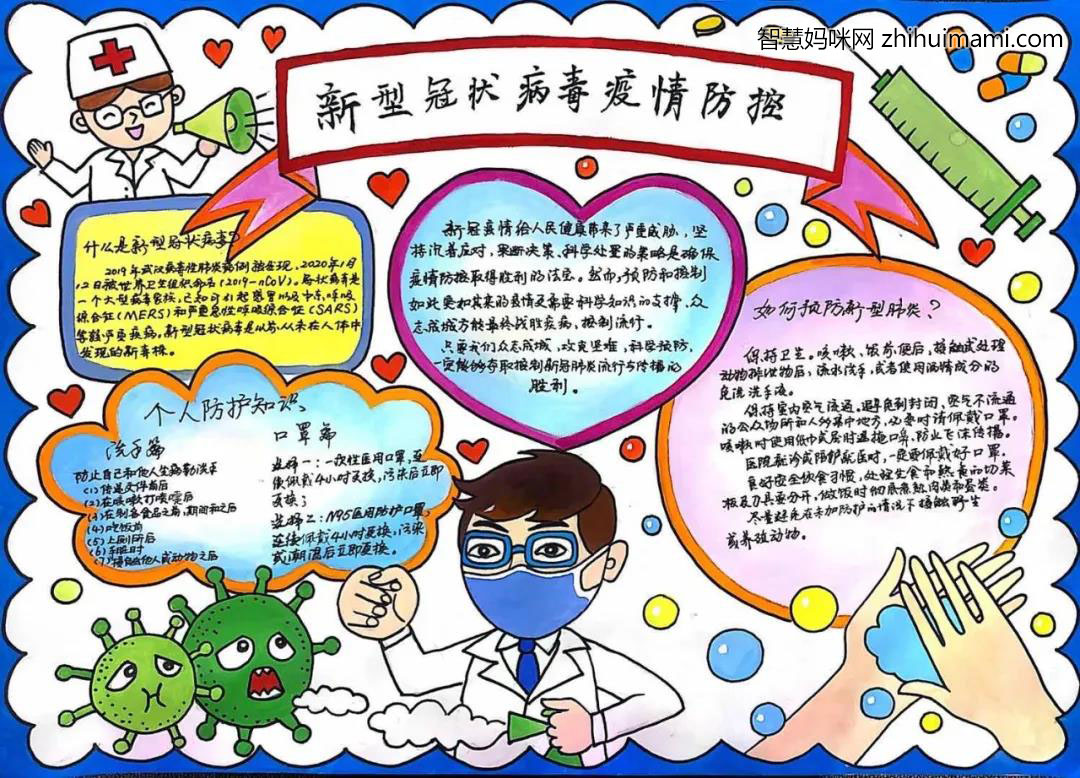 智慧妈咪网 zhihuimami.com
新型冠状病毒疫情防控
什么是新型冠状病毒?
2019年武汉病毒性肺炎病例被发现,2020年1月
12日被世界卫生组织命名(2019-nCoV)。冠状病毒是
一个大型病毒家族,已知可引起感冒以及中东呼吸
综合征(MERS)和严重急性呼吸综合征(SARS)
等较严重疾病。新型冠状病毒是以前从未在人体中
发现的新毒株。
新冠疫情给人民健康带来了严重威胁,坚
持沉着应对,果断决策、科学处置的策略是确保
疫情防控取得胜利的法宝。然而,预防和控制
如此突如其来的疫情更需要科学知识的支撑,众
志成城方能最终战胜疾病,控制流行。
只要我们众志成城、攻克坚难,科学预防,
一定能够夺取控制新冠肺炎流行与传播的
胜利。
如何预防新型肺炎?
保持卫生。咳嗽、饭前便后、接触或处理
动物排泄物后,流水洗手,或者使用酒精成分的
免洗洗手液。
保持室内空气流通。避免到封闭、空气不流通
的公众场所和人多集中地方,必要时请佩戴口罩。
咳嗽时使用纸巾或屈肘遮掩口鼻,防止飞沫传播。
医院就诊或陪护就医时,一定要佩戴好口罩。
良好安全饮食习惯,处理生食和熟食的切菜
板及刀具要分开,做饭时彻底煮熟肉类和蛋类。
尽量避免在未加防护的情况下接触野生
或养殖动物。
个人防护知识
洗手篇
防止自己和他人生病勤洗手
(1)传递文件前后
(2)在咳嗽打喷嚏后
(3)在制备食品之前、期间和之后
(4)吃饭前
(5)上厕所后
(6)手脏时
(7)接触他人或动物之后
口罩篇
选择一:一次性医用口罩,连
续佩戴4小时更换,污染后立即
更换;
选择二:N95医用防护口罩,
连续佩戴4小时更换,污染
或潮湿后立即更换。